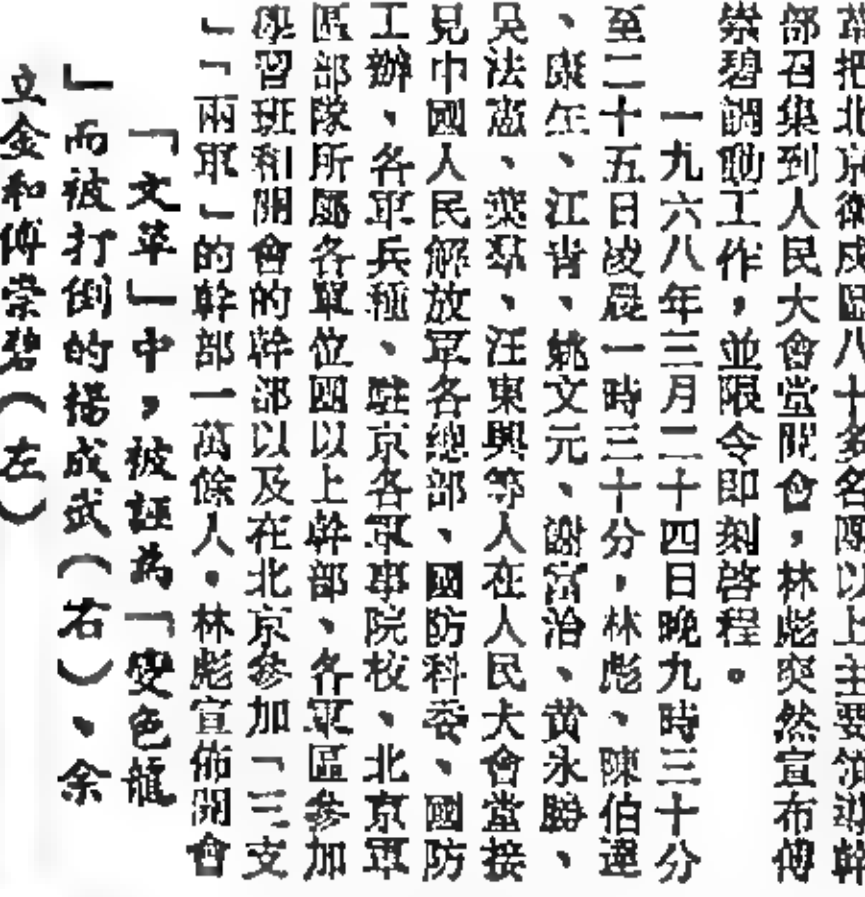 革把北京衛戍區八十多名團以上主要領導幹
部召集到人民大會堂開會，林彪突然宣布傅
崇碧調動工作，並限令即刻啓程。
一九六八年三月二十四日晚九時三十分
至二十五日淩晨一時三十分，林彪、陳伯達
、康生、江青、姚文元、謝富治、黃永勝、
吳法憲、葉羣、汪東興等人在人民大會堂接
見中國人民解放軍各總部、國防科委、國防
工辦、各軍兵種、駐京各軍事院校、北京軍
區部隊所屬各單位團以上幹部、各軍區參加
學習班和開會的幹部以及在北京參加「三支
」「兩軍」的幹部一萬餘人。林彪宣佈開會
「文革」中，被誣為「變色龍
」而被打倒的楊成武（右）、余
立金和傅崇碧（左）